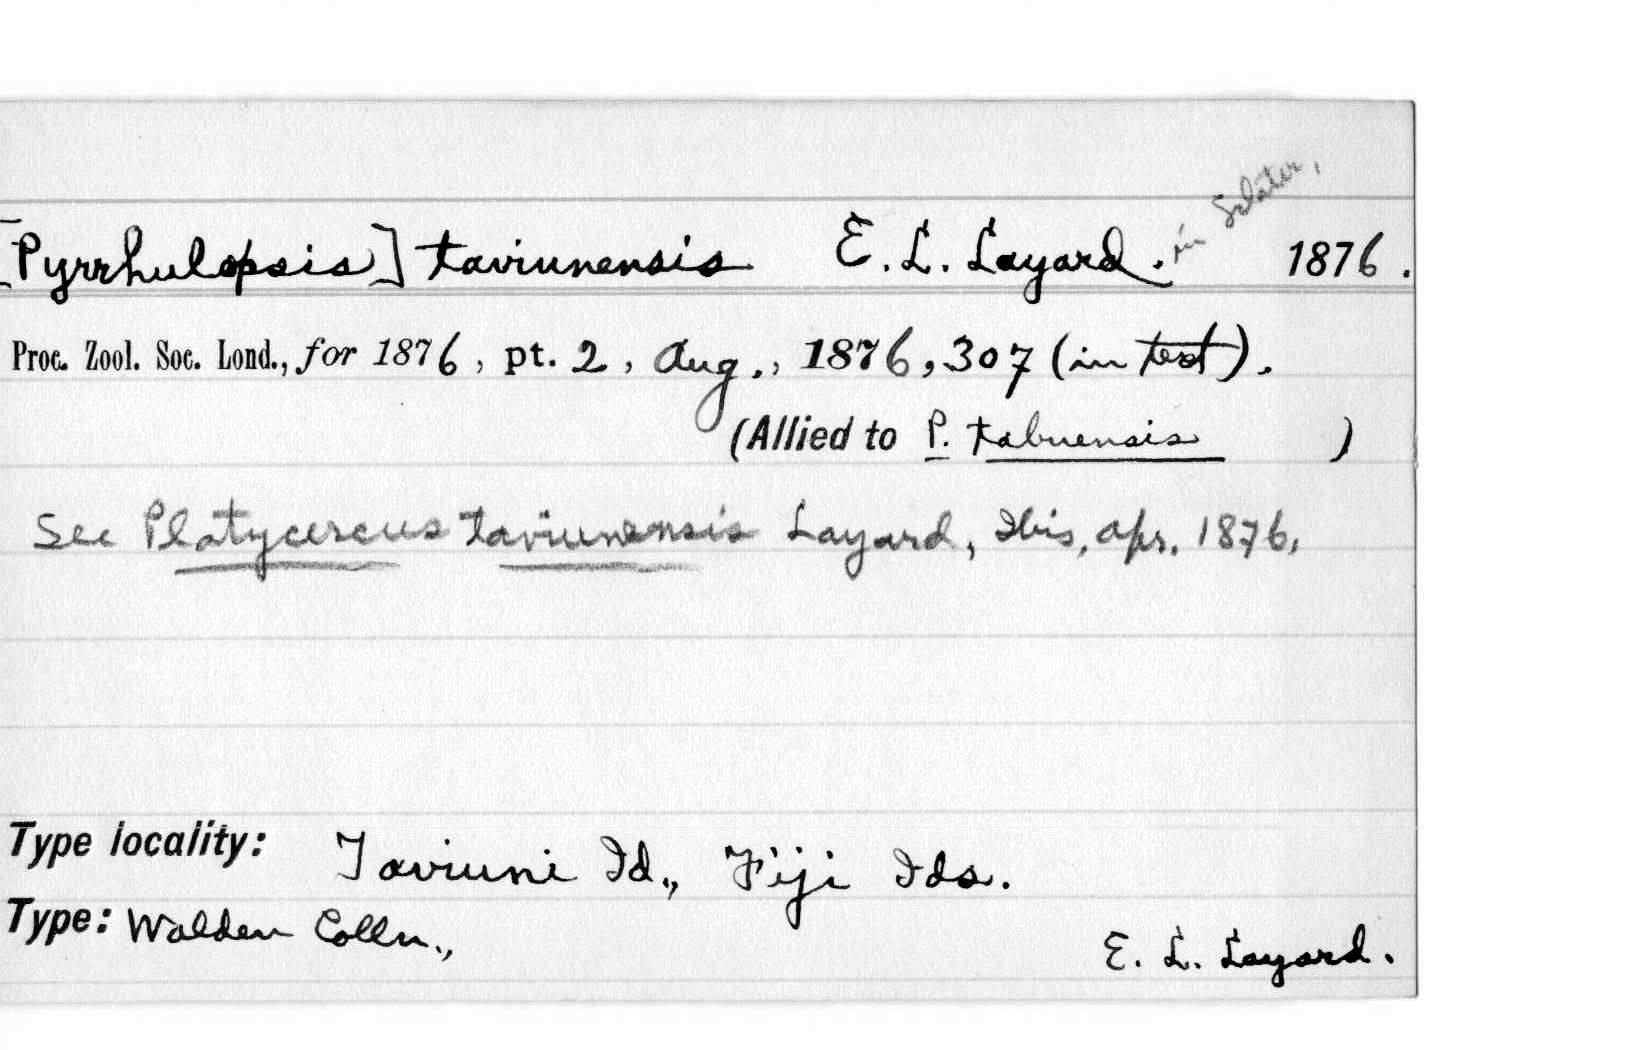 [Pyrrhulopsis] taviunensis E. L. Layard. in Sclater, 1876.
Proc. Zool. Soc. Lond., for 1876, pt. 2, Aug., 1876, 307 (in text).
(Allied to P. tabuensis )
See Platycercus taviunensis Layard, Ibis, Apr. 1876,
Type locality: Taviuni Id., Fiji Ids.
Type: Walden Colln., E. L. Layard.